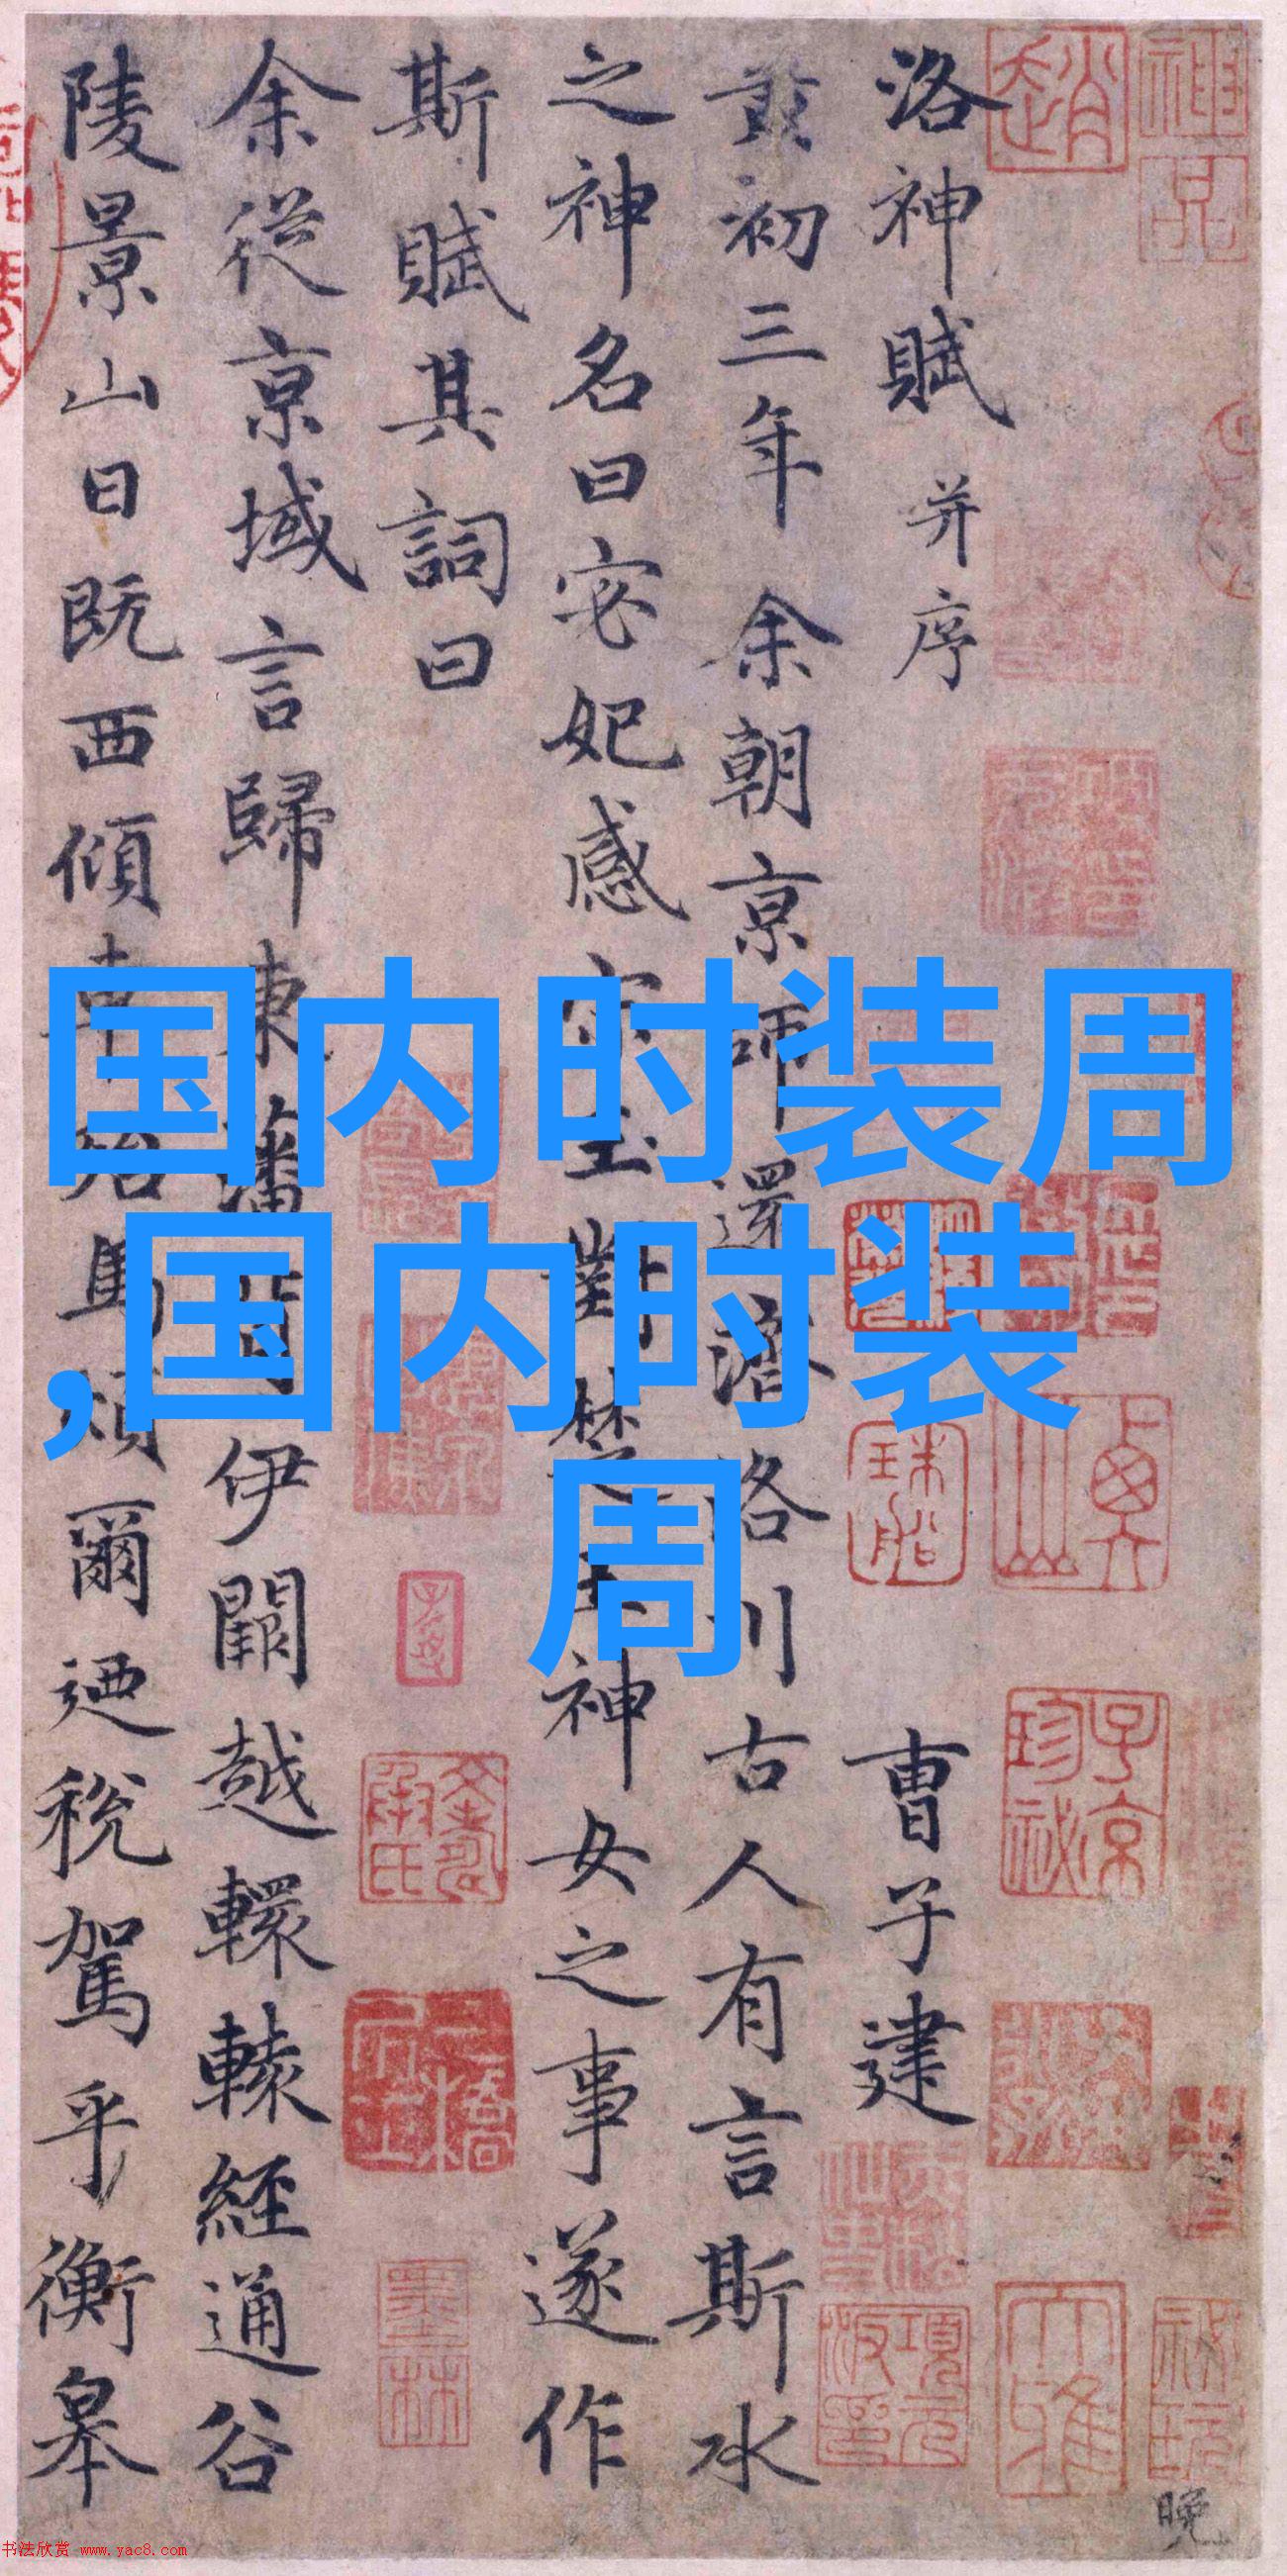 洛神賦 并序 曹子建
黄初三年余朝京師還濟洛川古人有言斯水
之神名曰宓妃感宋玉對楚王神女之事遂作
斯賦其詞曰
余從京域言歸東藩背伊闕越轘轅經通谷
陵景山日既西傾車殆馬煩爾迺稅駕乎衡皋
国内时装周
,国内时装
周
趙
神品
子京珍祕
項元汴印
墨林
晚
书法欣赏 www.yac8.com